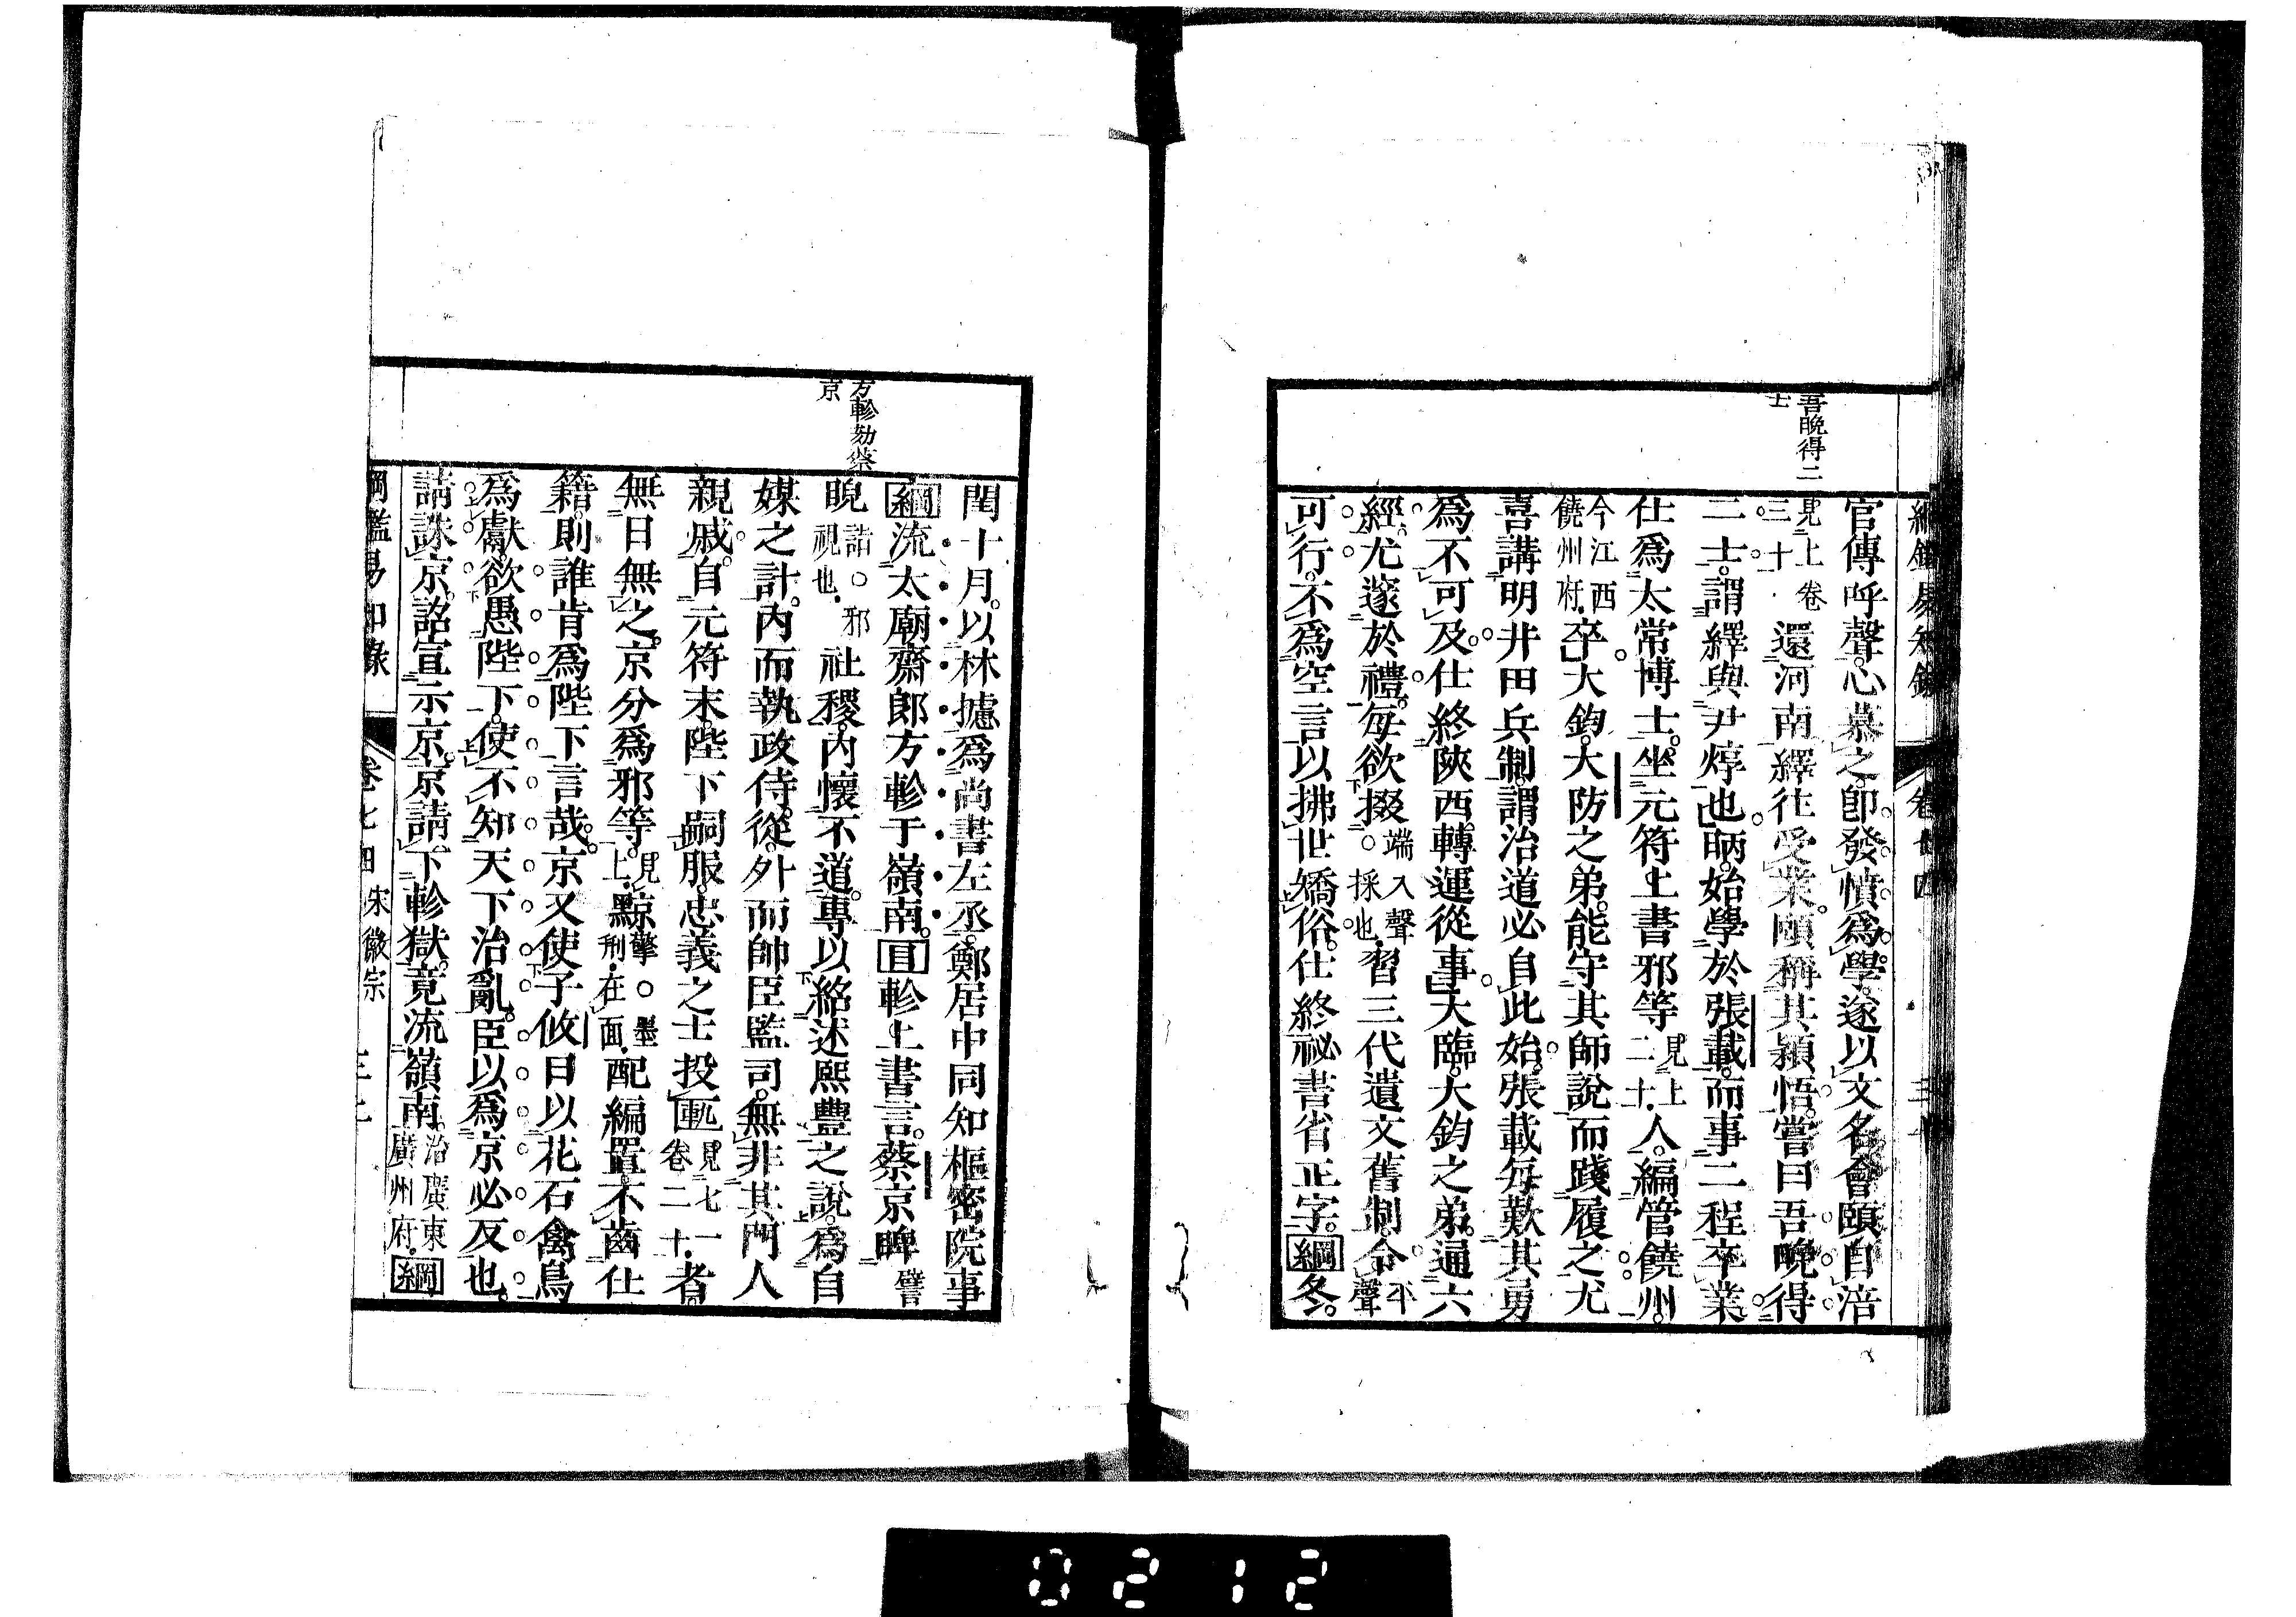 吾晩得二
士
官傳呼聲心慕之。卽發憤爲學。遂以文名會頤自涪
見上卷三十還河南繹往受業頤稱其穎悟。嘗曰吾晩得
二士。謂繹與尹焞也昞。始學於張載。而事二程卒業
仕爲太常博士。坐元符上書邪等見上二十。人。編管饒州。
今江西饒州府。卒大鈞。大防之弟。能守其師說而踐履之尤
喜講明井田兵制。謂治道必自此始。張載每歎其勇
爲不可及仕終陝西轉運從事大臨。大鈞之弟。通六
經。尤邃於禮。每欲掇端入聲。採也。習三代遺文舊制。令平聲
可行。不爲空言以拂世矯俗。仕終祕書省正字。綱冬。
方軫劾蔡
京
閏十月。以林攄爲尚書左丞。鄭居中同知樞密院事
綱流太廟齋郎方軫于嶺南。目軫上書言。蔡京睥譬
睨詣。邪視也。社稷。內懷不道。專以紹述熙豐之說。爲自
媒之計。內而執政侍從。外而帥臣監司。無非其門人
親戚。自元符末。陛下嗣服。忠義之士投匭見七一卷二十。者。
無日無之。京分爲邪等。見上。黥擎。墨刑在面。配編置不齒仕
籍。則誰肯爲陛下言哉。京又使子攸日以花石禽鳥
爲獻。欲愚陛下。使不知天下治亂。臣以爲京必反也。
請誅京。詔宣示京。京請下軫獄。竟流嶺南。治廣東廣州府。綱
綱鑑易知錄 卷七四 宋徽宗